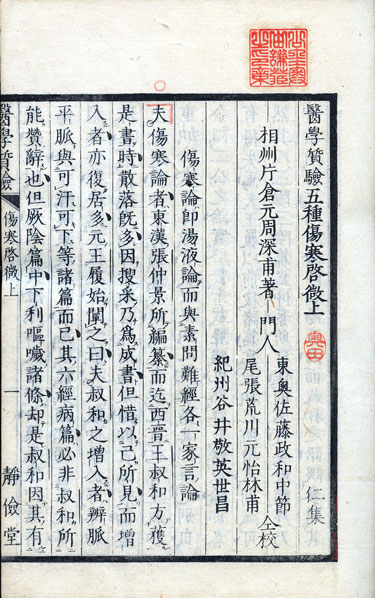 醫學質驗五種傷寒啓微上
仁集
相州片倉元周深甫著
門人
東奥佐藤政和中節
尾張荒川元怡林甫
紀州谷井敬英世昌
仝校
傷寒論即湯液論而與素問難經各一家言論
夫傷寒論者東漢張仲景所編纂而迄西晉王叔和方獲
是書時散落既多因搜采乃爲成書但惜以己所見而增
入者亦復居多元王履始闖之曰夫叔和之增入者辨脈
平脈與可汗可下等諸篇而已其六經病篇必非叔和所
能贊辭也但厥陰篇中下利嘔噦諸條却是叔和因其有
醫學質驗
傷寒啓微上
一
靜儉堂
奥田